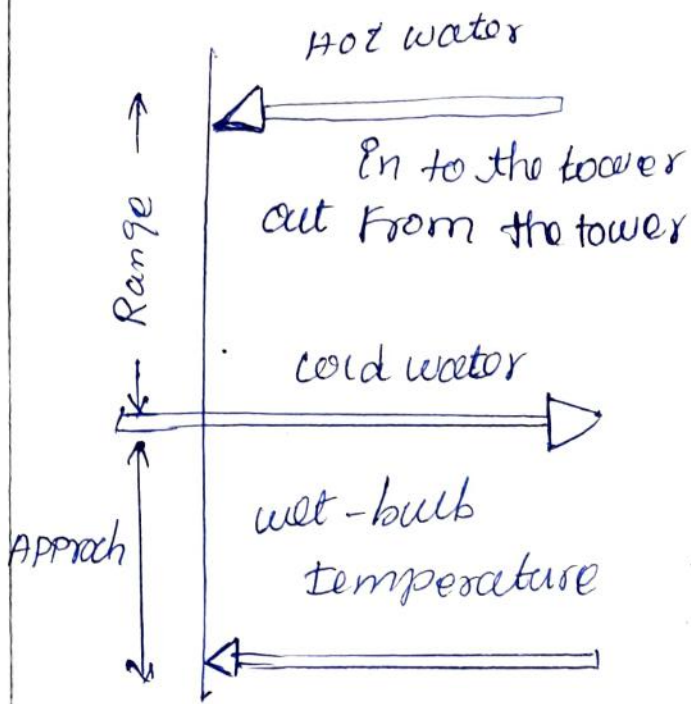 Hot water
in to the tower
out from the tower
Range
cold water
wet-bulb
temperature
Approch